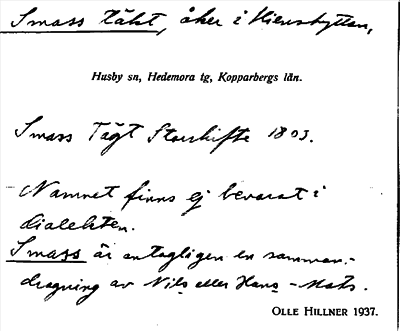 Smass täkt, åker i Hiensbyttan,
Husby sn, Hedemora tg, Kopparbergs län.
Smass Tägt Storskifte 1803.
Namnet finns ej bevarat i
dialekten.
Smass är antagligen en samman-
dragning av Nils eller Hans-Mats.
OLLE HILLNER 1937.